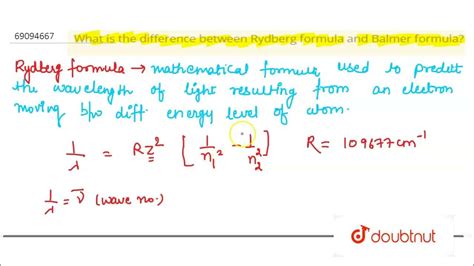 69094667
What is the difference between Rydberg formula and Balmer formula?
Rydberg formula → mathematical formula used to predict
the wavelength of light resulting from an electron
moving b/w diff. energy level of atom.
1/λ = RZ² [1/n₁² - 1/n₂²] R = 109677 cm⁻¹
1/λ = ν̄ (wave no.)
doubtnut